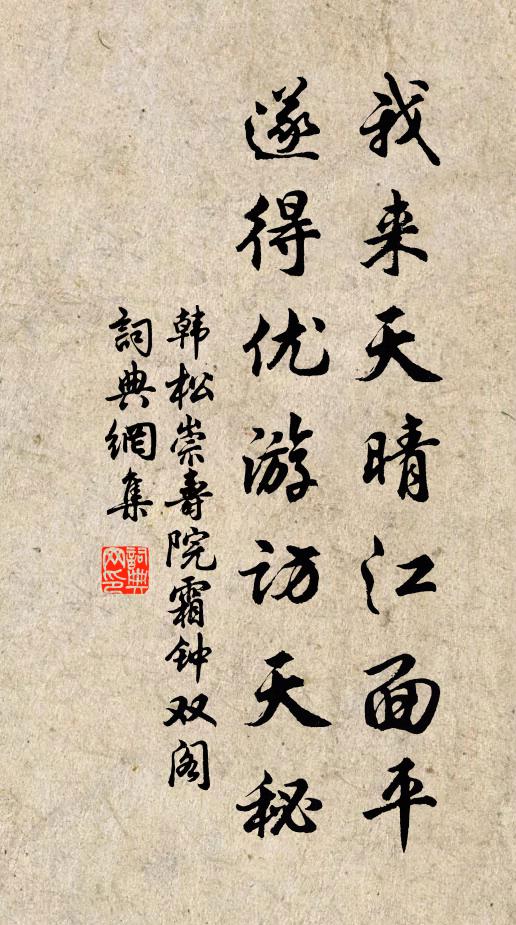 我来天晴江面平
遂得优游访天秘
韩松崇寿院霜钟双阁
詞典網集
詞典网印